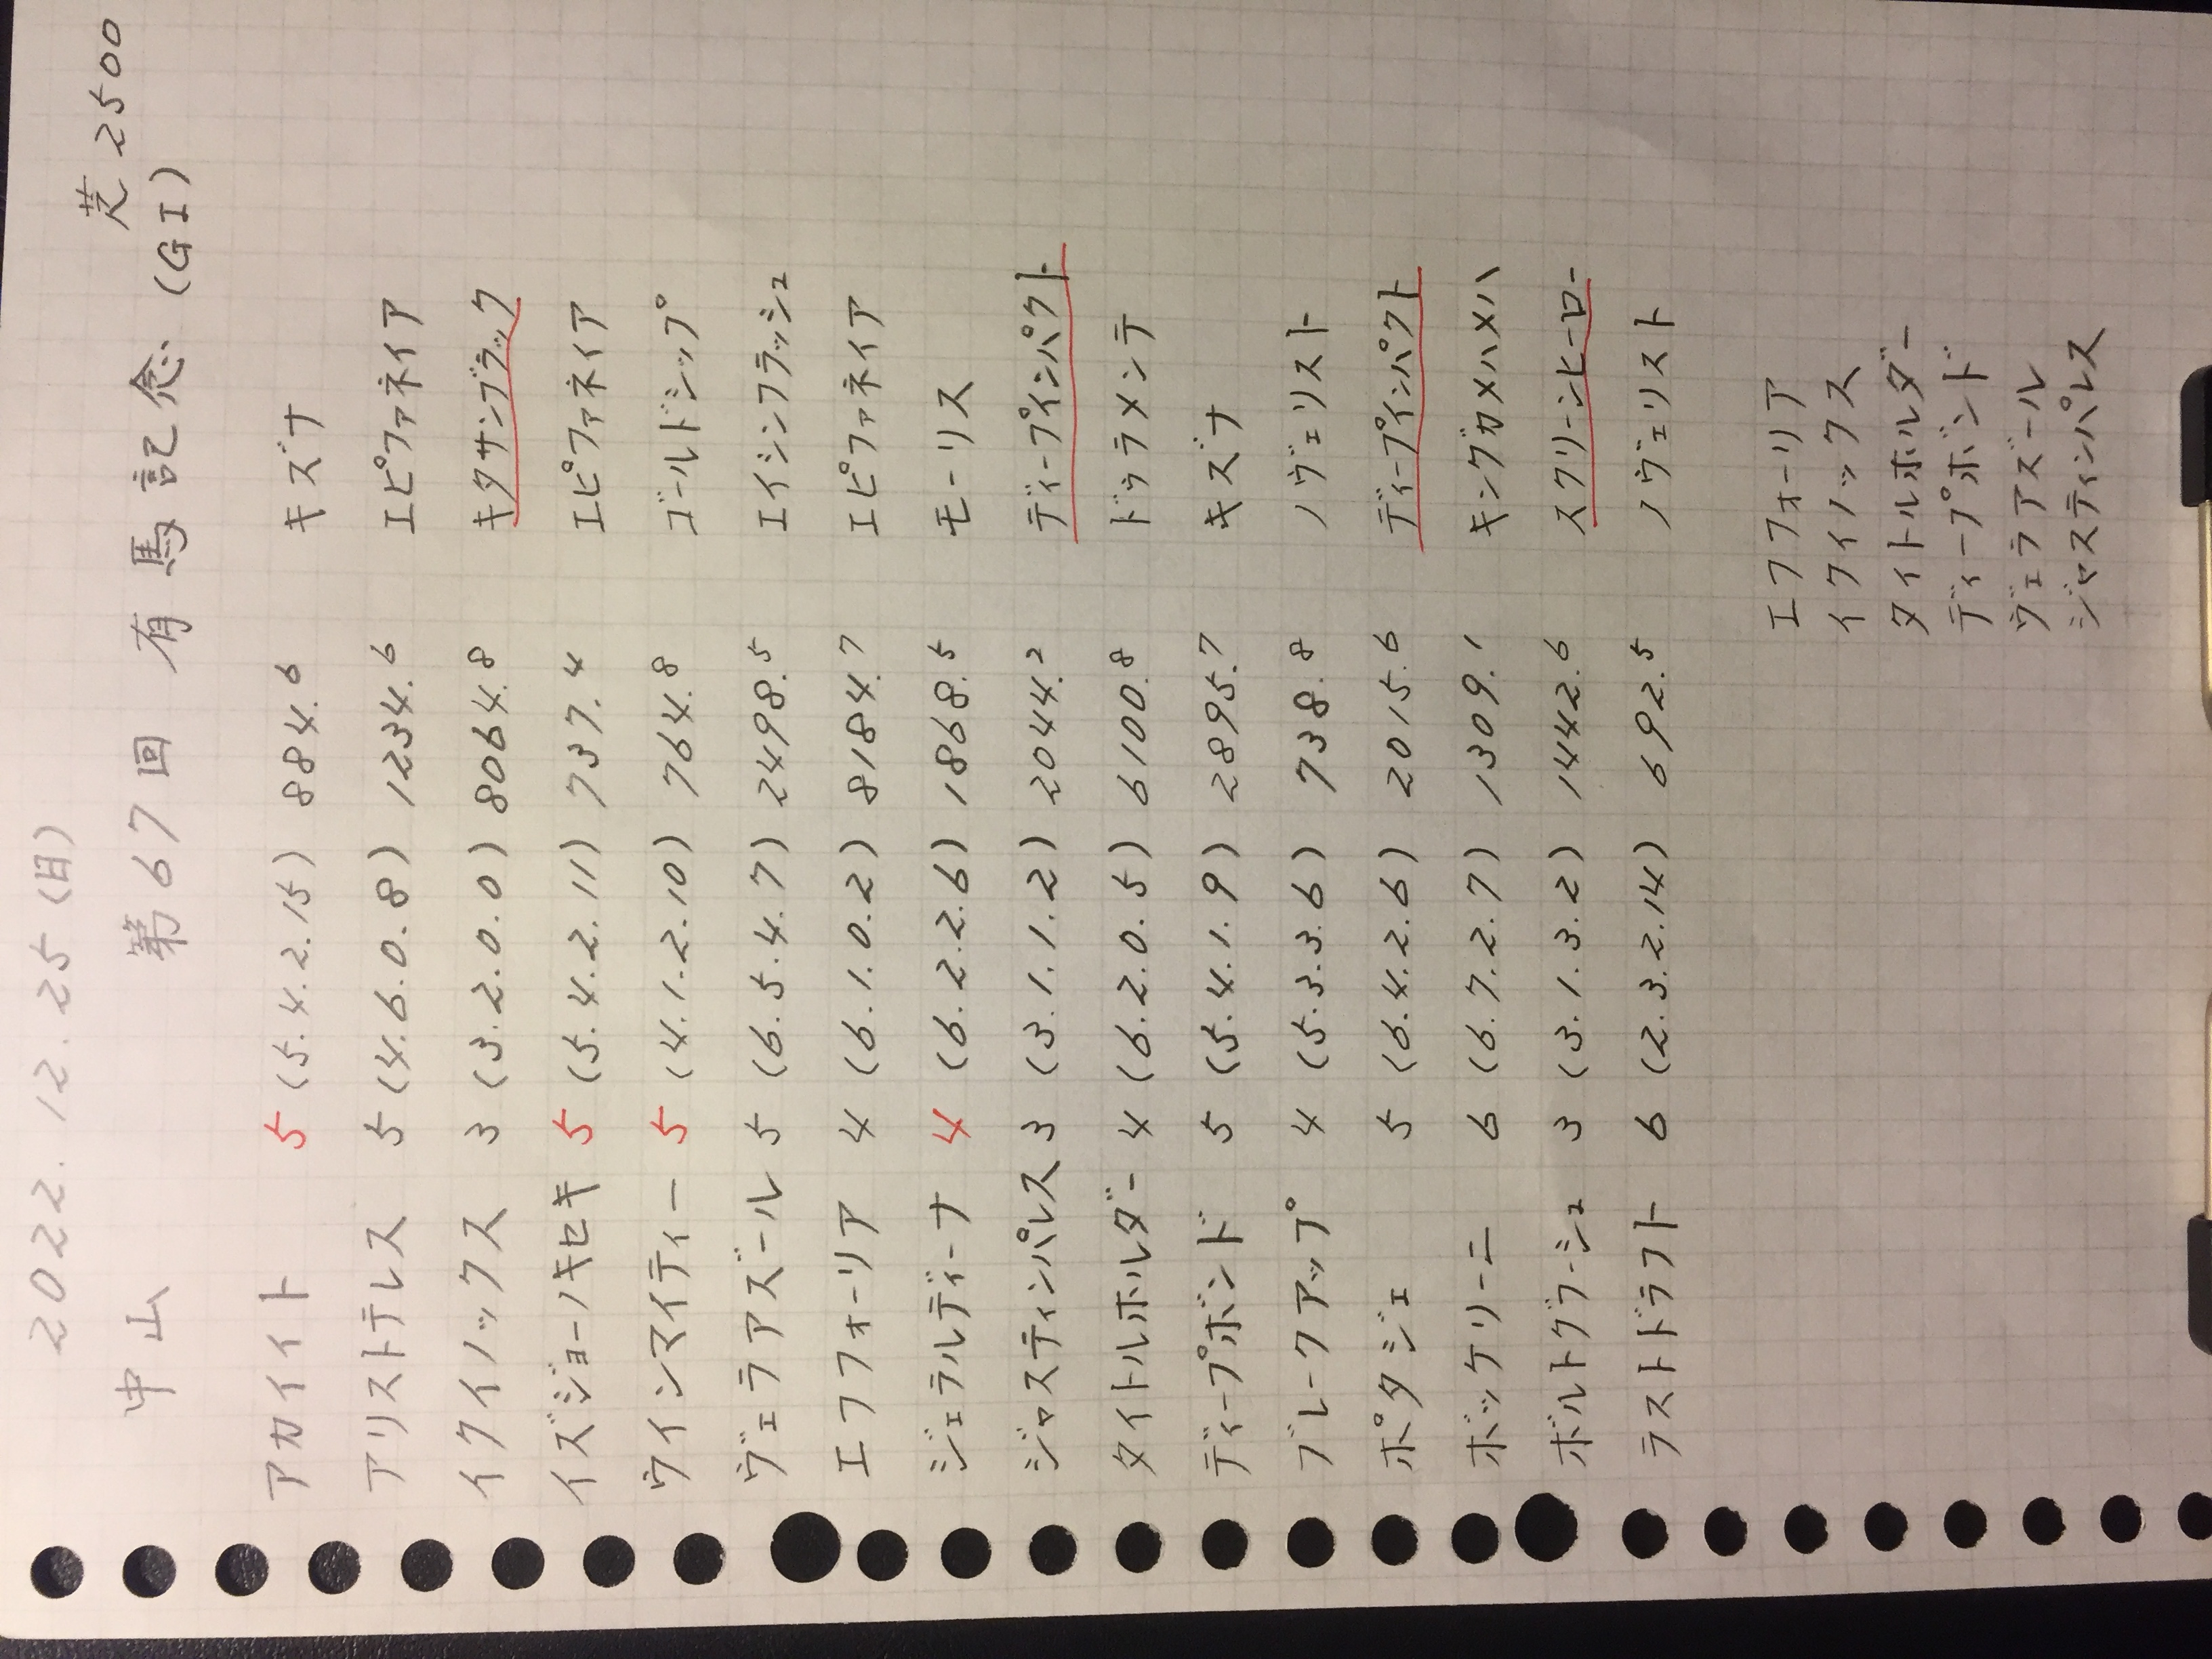 2022.12.25(日)
芝2500
中山 第67回 有馬記念(GI)
アカイイト 5 (5.4.2.15) 884.6 キズナ
アリストテレス 5 (4.6.0.8) 1234.6 エピファネイア
イクイノックス 3 (3.2.0.0) 8064.8 キタサンブラック
イズジョーノキセキ 5 (5.4.2.11) 737.4 エピファネイア
ウインマイティー 5 (4.1.2.10) 764.8 ゴールドシップ
ヴェラアズール 5 (6.5.4.7) 2498.5 エイシンフラッシュ
エフフォーリア 4 (6.1.0.2) 8184.7 エピファネイア
ジェラルディーナ 4 (6.2.2.6) 1868.5 モーリス
ジャスティンパレス 3 (3.1.1.2) 2044.2 ディープインパクト
タイトルホルダー 4 (6.2.0.5) 6100.8 ドゥラメンテ
ディープボンド 5 (5.4.1.9) 2895.7 キズナ
ブレークアップ 4 (5.3.3.6) 738.8 ノヴェリスト
ポタジェ 5 (6.4.2.6) 2015.6 ディープインパクト
ボッケリーニ 6 (6.7.2.7) 1309.1 キングカメハメハ
ボルドグフーシュ 3 (3.1.3.2) 1442.6 スクリーンヒーロー
ラストドラフト 6 (2.3.2.14) 692.5 ノヴェリスト
エフフォーリア
イクイノックス
タイトルホルダー
ディープボンド
ヴェラアズール
ジャスティンパレス